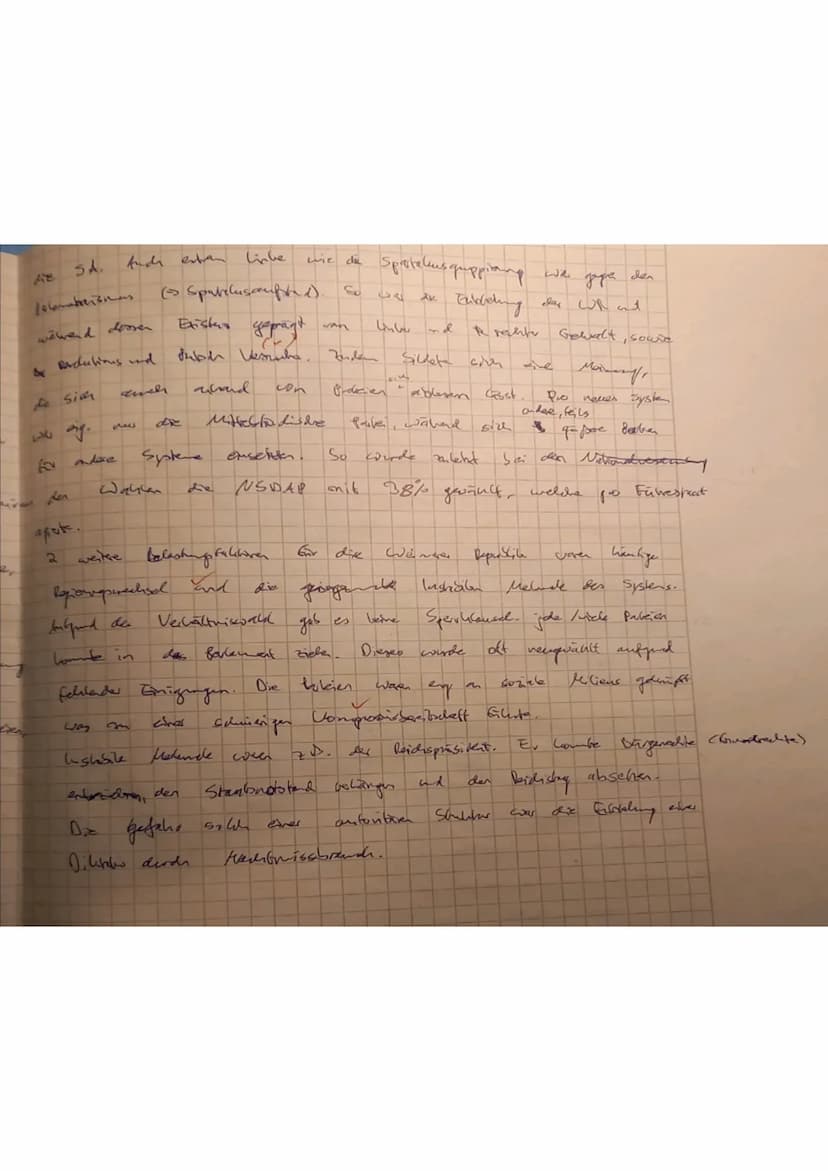 die SA. Auch extrem Linke wie die Spartakusgruppierung war gegen den
(→ Spartakusaufstand). So war die Entstehung der WR und
während dessen Existenz geprägt von linker und rechter Gewalt, sowie
und Versuche. Zudem bildete sich eine Meinung,
die sich auch anhand von Parteien ablesen lässt. Pro neuen System
war nur die Mittelständische Partei, während sich große
andere, teils
für andere Systeme einsetzten. So wurde zuletzt bei den
den Wahlen die NSDAP mit 38% gewählt, welche pro Führerstaat
2 weitere Belastungsfaktoren für die Weimarer Republik waren häufige
Regierungswechsel und die Instabilen Merkmale des Systems.
Aufgrund der Verhältniswahl gab es keine Sperrklausel. jede/viele Parteien
konnte in das Parlament ziehen. Dieses wurde oft neugewählt aufgrund
fehlender Einigungen. Die Parteien waren eng an soziale Milieus geknüpft
was zu einer schwierigen Kompromissbereitschaft führte.
Instabile Merkmale waren z.B. der Reichspräsident. Er konnte Bürgerrechte (Grundrechte)
den Staatsnotstand verhängen und den Reichstag absetzen.
Die Gefahr solch einer autoritären Struktur war die Entstehung einer
Diktatur durch Machtmissbrauch.